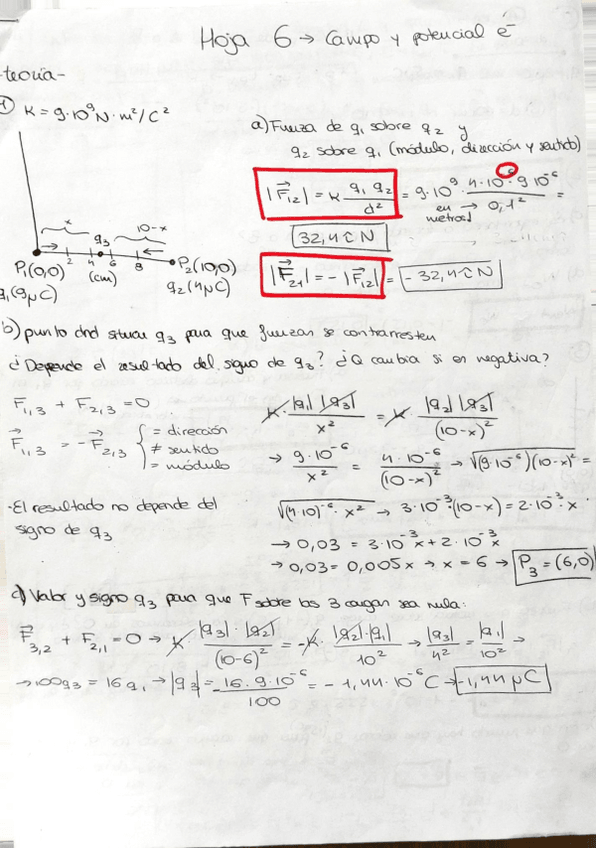 Hoja 6 → Campo y potencial é
-teoría-
1 K = 9·10⁹ N·m²/C²
a) Fuerza de q₁ sobre q₂ y
q₂ sobre q₁ (módulo, dirección y sentido)
|F⃗₁₂| = K q₁ q₂ / d² = 9·10⁹ · 4·10⁻⁶ · 9·10⁻⁶ / 0,1² =
en metros
32,4 î N
|F⃗₂₁| = -|F⃗₁₂| = -32,4 î N
x 10-x
q₃
2 4 6 8
(cm)
P₁(0,0) P₂(10,0)
q₁(9μC) q₂(4μC)
b) punto dnd situar q₃ para que fuerzas se contrarresten
¿Depende el resultado del signo de q₃? ¿Q cambia si es negativa?
F₁,₃ + F₂,₃ = 0
F⃗₁,₃ = -F⃗₂,₃ { = dirección
≠ sentido
= módulo
K · |q₁| |q₃| / x² = K · |q₂| |q₃| / (10-x)²
→ 9·10⁻⁶ / x² = 4·10⁻⁶ / (10-x)² → √(9·10⁻⁶)(10-x)² =
√(4·10)⁻⁶ · x² → 3·10⁻³·(10-x) = 2·10⁻³·x
→ 0,03 = 3·10⁻³x + 2·10⁻³x
→ 0,03 = 0,005x → x = 6 → P₃ = (6,0)
·El resultado no depende del
signo de q₃
c) Valor y signo q₃ para que F sobre las 3 cargas sea nula:
F⃗₃,₂ + F₂,₁ = 0 → K · |q₃|·|q₂| / (10-6)² = -K · |q₂|·|q₁| / 10² → |q₃| / 4² = |q₁| / 10² →
→ 100q₃ = 16q₁ → |q₃| = -16·9·10⁻⁶ / 100 = -1,44·10⁻⁶ C → -1,44 μC